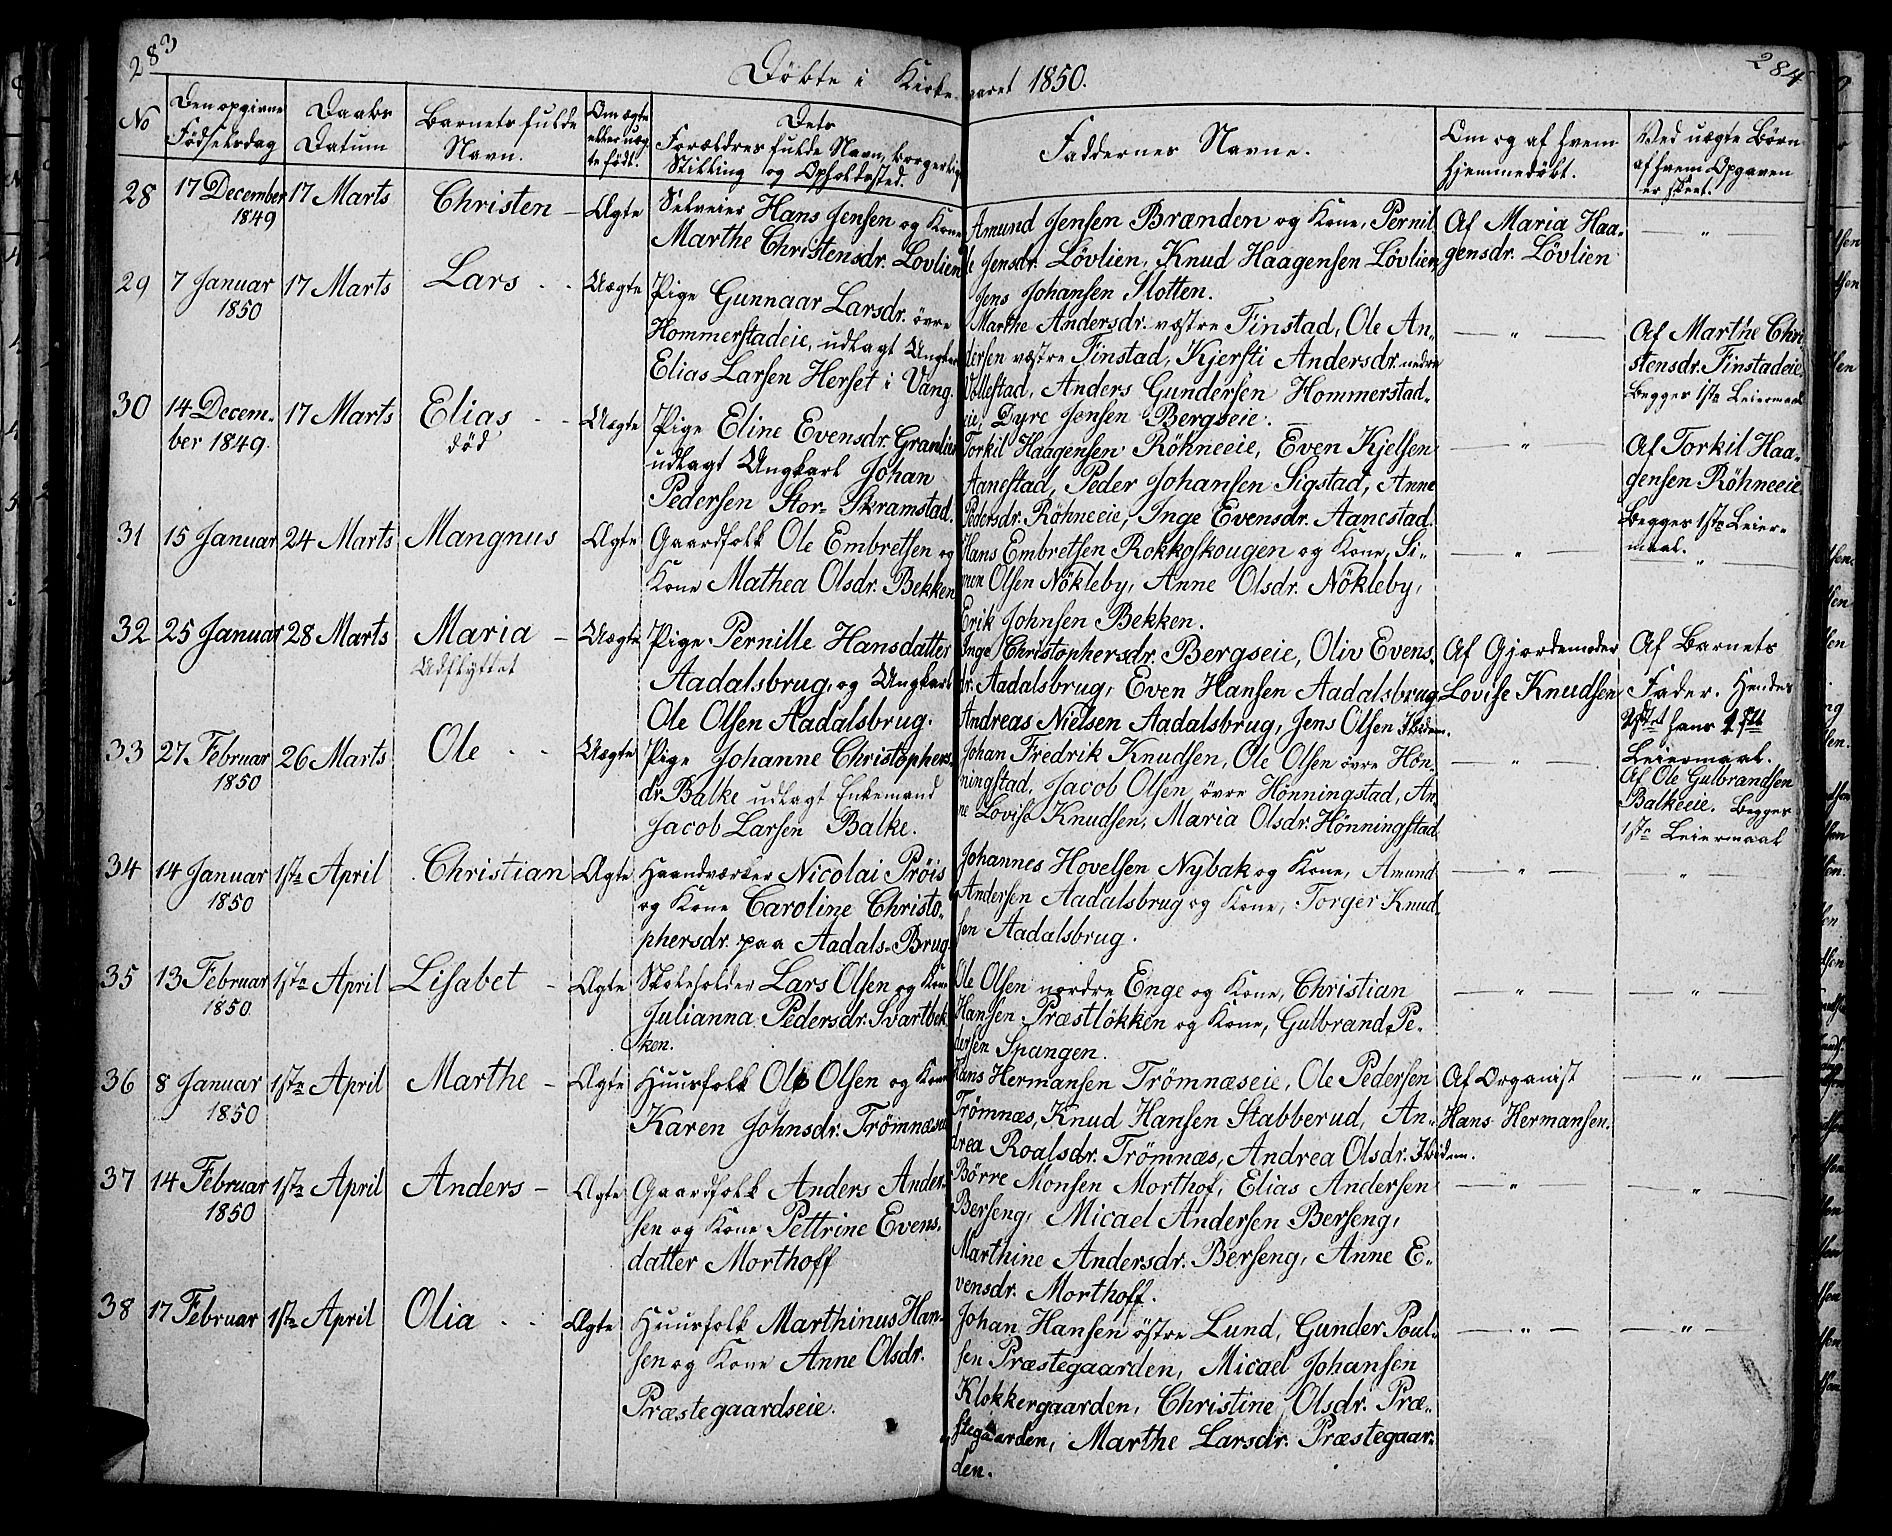 283
284
Döbte i Kirke-aaret 1850.
No
Den opgivne Födselsdag
Daabs Datum
Barnets fulde Navn.
Om ægte eller uægte födt.
Dets Forældres fulde Navn, borgerlig Stilling og Opholdssted.
Faddernes Navne.
Om og af hvem hjemmedöbt.
Ved uægte Börn af hvem Opgaven er skeet.
28
17 December 1849
17 Marts
Christen
Ægte
Selveier Hans Jensen og Kone
Marthe Christensdr. Lövlien
Amund Jensen Brænden og Kone, Pernil-
le Jensdr. Lövlien, Knud Haagensen Lövlien,
Jens Johansen Slotten.
Af Maria Haa-
gensdr. Lövlien
— " —
29
7 Januar 1850
17 Marts
Lars
Uægte
Pige Gunnaar Larsdr. övre
Hommerstadeie, udlagt Ungkarl
Elias Larsen Herset i Vang.
Marthe Andersdr. væstre Finstad, Ole An-
dersen væstre Finstad, Kjersti Andersdr. nedre
Vollestad, Anders Gundersen Hommerstad-
eie, Dyre Jensen Bergseie.
— " —
Af Marthe Chri-
stensdr. Finstadeie.
Begges 1ste Leiermaal
30
14 Decem-
ber 1849.
17 Marts
Elias
död
Uægte
Pige Eline Evensdr. Granlien
udlagt Ungkarl Johan
Pedersen Stor-Skramstad.
Torkil Haagensen Röhneeie, Even Kjelsen
Aanestad, Peder Johansen Sigstad, Anne
Pedersdr. Röhneeie, Inge Evensdr. Aanestad.
— " —
Af Torkil Haa-
gensen Röhneeie
Begges 1ste Leier-
maal.
31
15 Januar
24 Marts
Mangnus
Ægte
Gaardfolk Ole Embretsen og
Kone Mathea Olsdr. Bekken
Hans Embretsen Rokkoskougen og Kone, Si-
men Olsen Nökleby, Anne Olsdr. Nökleby,
Erik Johnsen Bekken.
— " —
— " —
32
25 Januar
28 Marts
Maria
Udflyttet
Uægte
Pige Pernille Hansdatter
Aadalsbrug, og Ungkarl
Ole Olsen Aadalsbrug.
Inge Christophersdr. Bergseie, Oliv Evens-
dr. Aadalsbrug, Even Hansen Aadalsbrug
Andreas Nielsen Aadalsbrug, Jens Olsen Ibidem.
Af Gjordemoder
Lovise Knudsen
Af Barnets
Fader. Hendes
hans 1ste
Leiermaal.
33
27 Februar 1850
26 Marts
Ole
Uægte
Pige Johanne Christophers-
dr. Balke udlagt Enkemand
Jacob Larsen Balke.
Johan Fredrik Knudsen, Ole Olsen övre Hön-
ningstad, Jacob Olsen övre Hönningstad, An-
ne Lovise Knudsen, Maria Olsdr. Hönningstad
— " —
Af Ole Gulbrandsen
Balkeeie. Begges
1ste Leiermaal
34
14 Januar 1850
1ste April
Christian
Ægte
Haandværker Nicolai Pröis
og Kone Caroline Christo-
phersdr. paa Aadals-Brug
Johannes Hovelsen Nybak og Kone, Amund
Andersen Aadalsbrug og Kone, Torger Knud-
sen Aadalsbrug.
— " —
— " —
35
13 Februar 1850
1ste April
Lisabet
Ægte
Skoleholder Lars Olsen og Kone
Julianna Pedersdr. Svartbek-
ken.
Ole Olsen nordre Enge og Kone, Christian
Hansen Præstlökken og Kone, Gulbrand Pe-
dersen Spangen.
— " —
— " —
36
8 Januar 1850
1ste April
Marthe
Ægte
Huusfolk Ole Olsen og Kone
Karen Johnsdr. Trömnæseie
Hans Hermansen Trömnæseie, Ole Pedersen
Trömnæs, Knud Hansen Stabberud, An-
drea Roalsdr. Trömnæs, Andrea Olsdr. Ibidem.
Af Organist
Hans Hermansen.
— " —
37
14 Februar 1850
1ste April
Anders
Ægte
Gaardfolk Anders Ander-
sen og Kone Pettrine Evens-
datter Morthoff
Börre Monsen Morthof, Elias Andersen
Berseng, Micael Andersen Berseng,
Marthine Andersdr. Berseng, Anne E-
vensdr. Morthoff.
— " —
— " —
38
17 Februar
1ste April
Olia
Ægte
Huusfolk Marthinus Han-
sen og Kone Anne Olsdr.
Præstegaardseie.
Johan Hansen östre Lund, Gunder Poul-
sen Præstegaarden, Micael Johansen
Klokkergaarden, Christine Olsdr. Præ-
stegaarden, Marthe Larsdr. Præstegaar-
den.
— " —
— " —